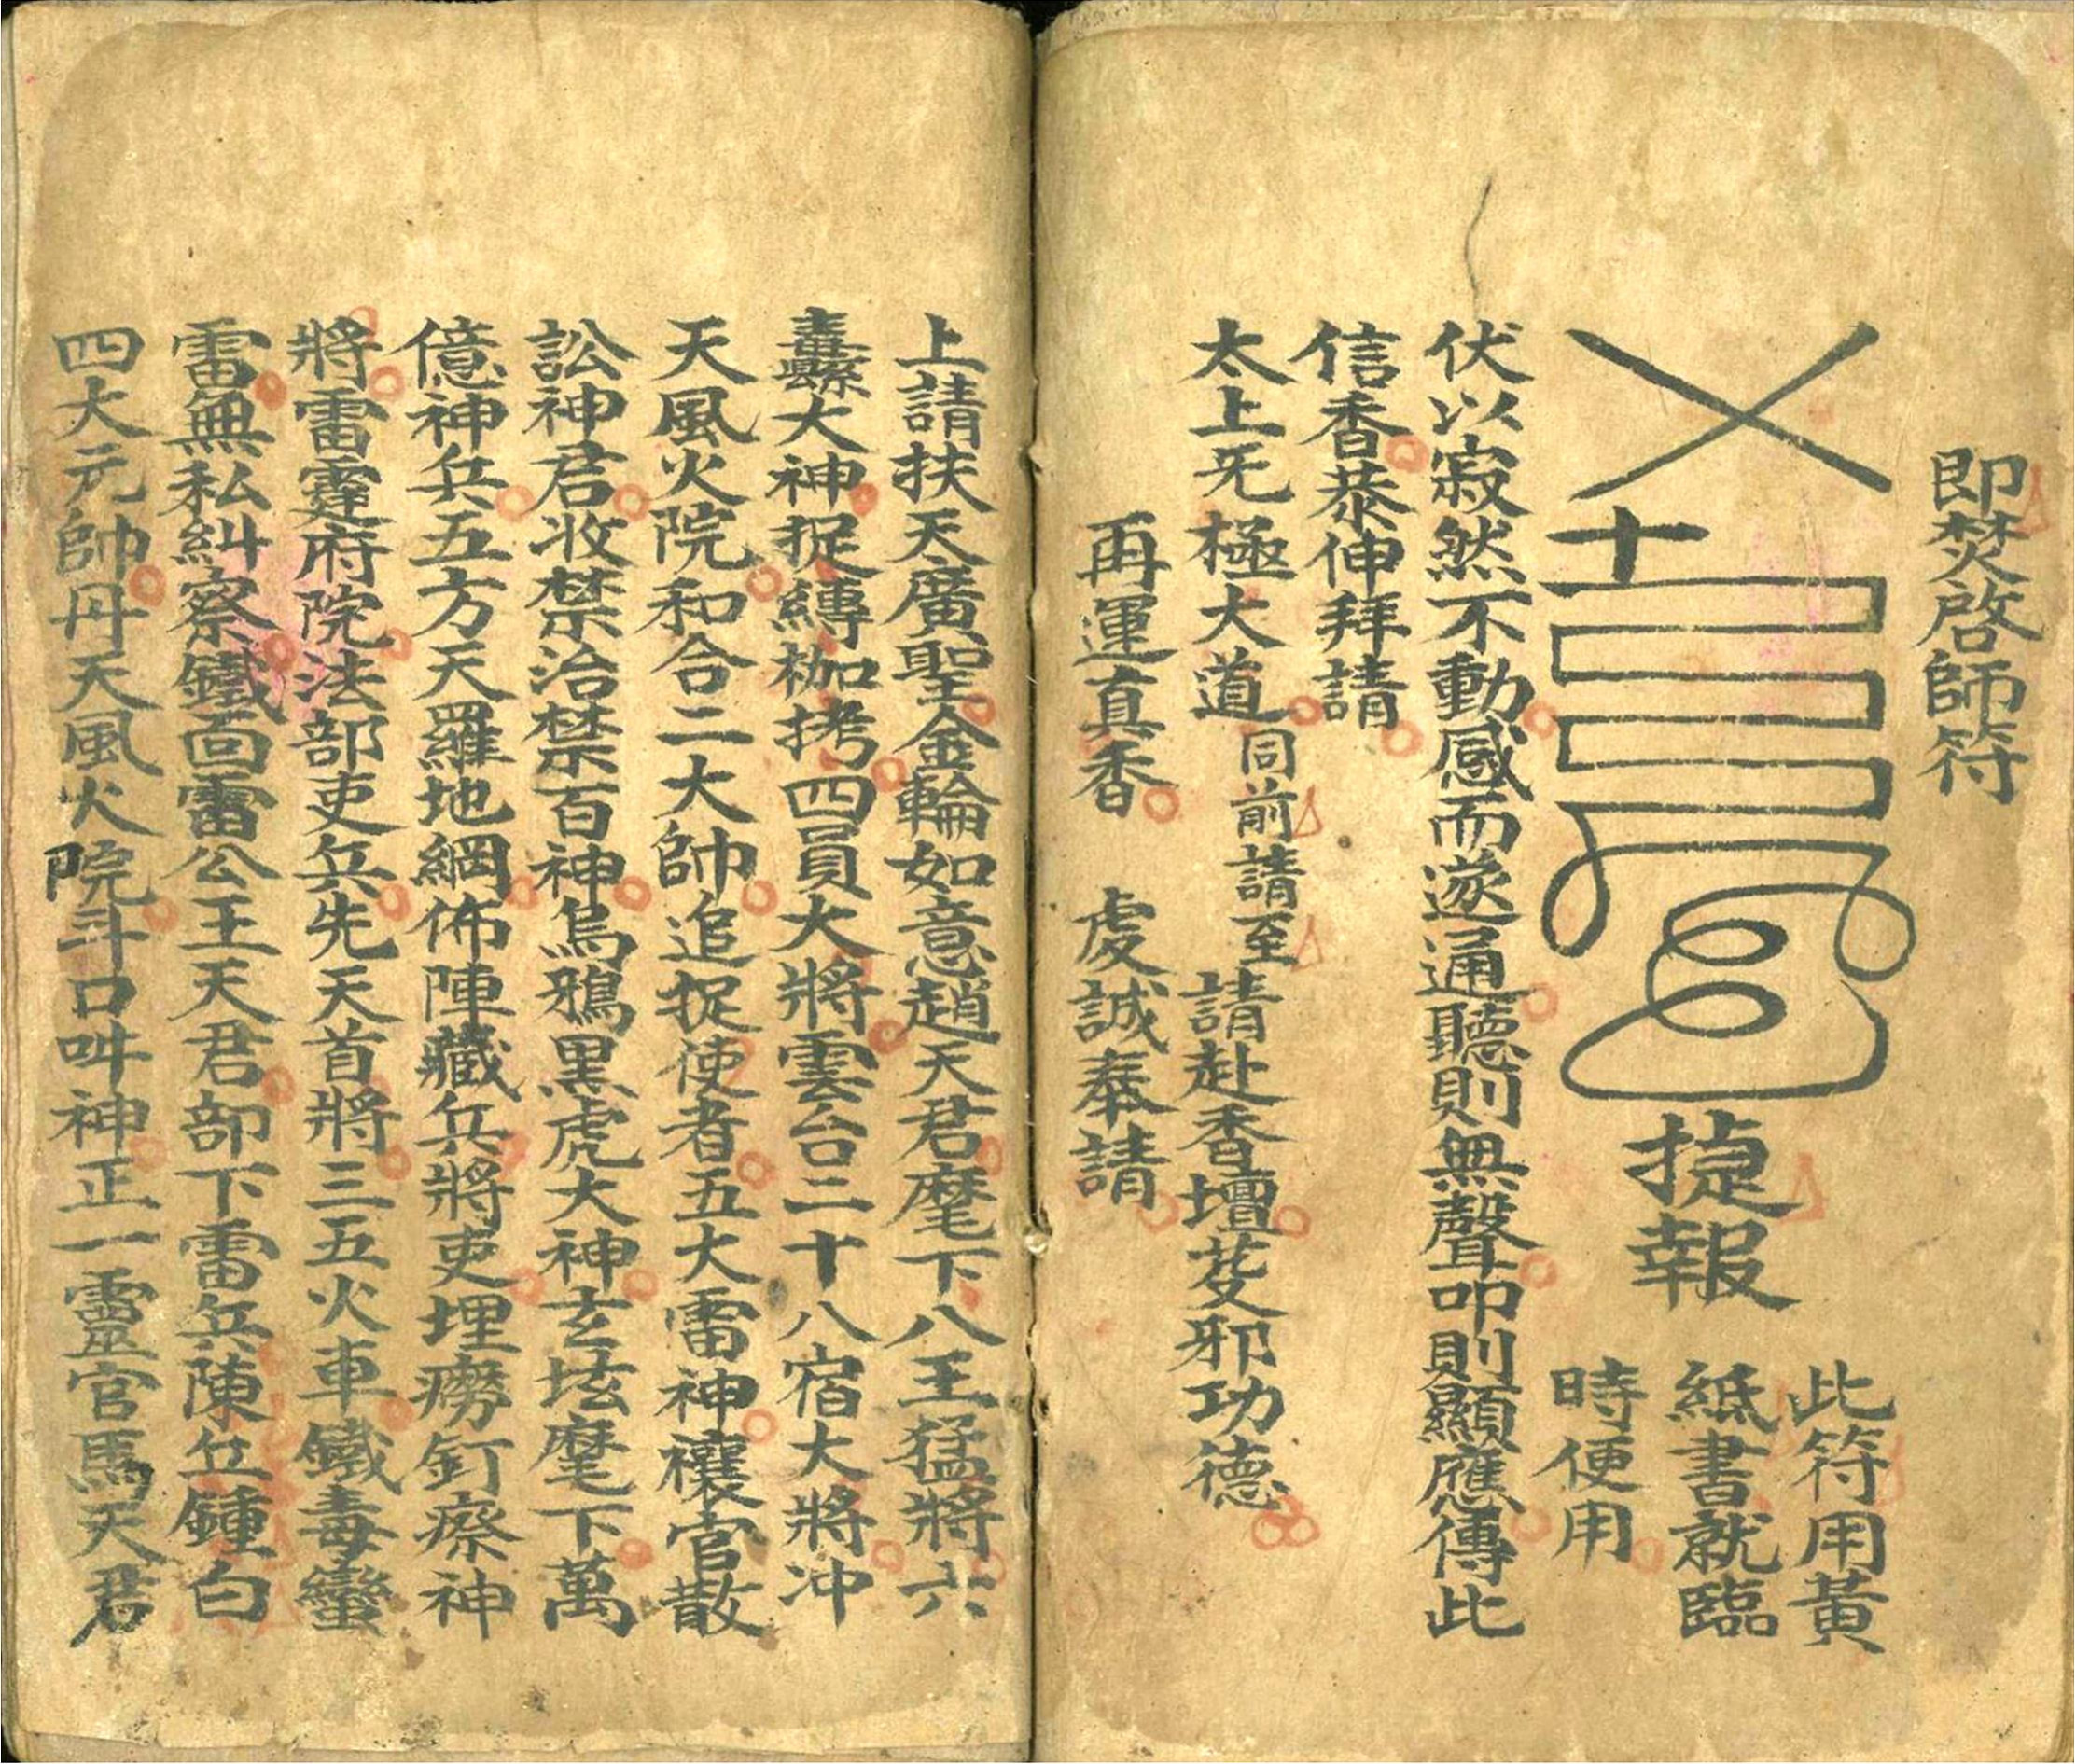 即焚啓師符
捷報
此符用黃
紙書就臨
時便用
伏以寂然不動感而遂通聽則無聲叩則顯應傳此
信香恭伸拜請
太上旡極大道同前請至請赴香壇芟邪功德
再運真香 虔誠奉請
上請扶天廣聖金輪如意趙天君麾下八王猛將六
纛大神捉縛枷拷四員大將雲台二十八宿大將冲
天風火院和合二大帥追捉使者五大雷神禳官散
訟神君收禁治禁百神烏鴉黑虎大神玄坛麾下萬
億神兵五方天羅地網佈陣藏兵將吏埋癆釘瘵神
將雷霆府院法部吏兵先天首將三五火車鐵毒蠻
雷無私糾察鐵面雷公王天君部下雷兵陳丘鍾白
四大元帥丹天風火院斗口呌神正一靈官馬天君